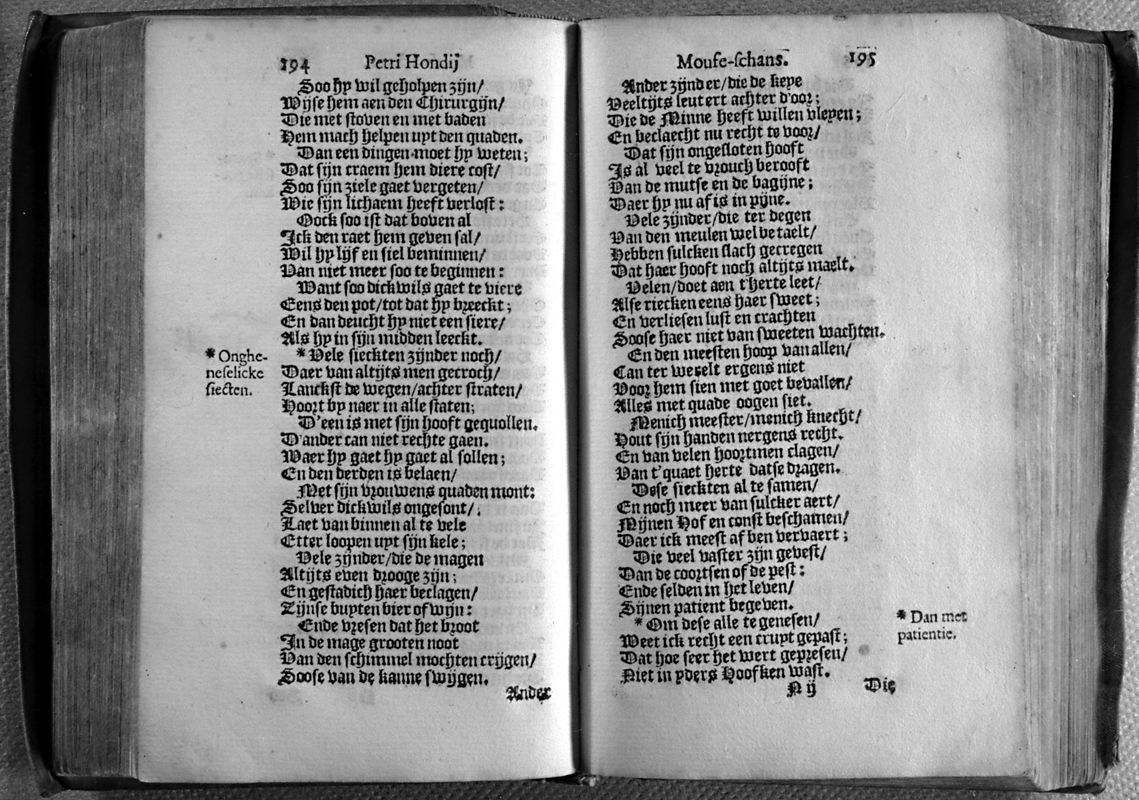 194 Petri Hondij
Soo hy wil geholpen zijn/
Wijse hem aen den Chirurgijn/
Die met stoven en met baden
Hem mach helpen uyt den quaden.
Dan een dingen moet hy weten;
Dat sijn craem hem diere cost/
Soo sijn ziele gaet vergeten/
Wie sijn lichaem heeft verlost:
Oock soo ist dat boven al
Ick den raet hem geven sal/
Wil hy lijf en siel beminnen/
Van niet meer soo te beginnen:
Want soo dickwils gaet te viere
Eens den pot/tot dat hy breeckt;
En dan deucht hy niet een siere/
Als hy in sijn midden leeckt.
* Onghe-
neselicke
siecten.
* Vele sieckten zijnder noch/
Daer van altijts men gecroch/
Lanckst de wegen/achter straten/
Hoort by naer in alle staten;
D'een is met sijn hooft gequollen.
D'ander can niet rechte gaen.
Waer hy gaet hy gaet al sollen;
En den derden is belaen/
Met sijn vrouwens quaden mont:
Selver dickwils ongesont/.
Laet van binnen al te vele
Etter loopen uyt sijn kele;
Vele zijnder/die de magen
Altijts even drooge zijn;
En gestadich haer beclagen/
Zijnse buyten bier of wijn:
Ende vresen dat het broot
In de mage grooten noot
Van den schimmel mochten crijgen/
Soose van de kanne swijgen.
Ander
Mouse-schans. 195
Ander zijnd er/die de keye
Veeltijts leutert achter d'oor;
Die de Minne heeft willen vleyen;
En beclaecht nu recht te voor/
Dat sijn ongesloten hooft
Is al veel te vrouch berooft
Van de mutse en de bagijne;
Daer hy nu af is in pijne.
Vele zijnder/die ter degen
Van den meulen wel betaelt/
Hebben sulcken slach gecregen
Dat haer hooft noch altijts maelt.
Velen/doet aen t'herte leet/
Alse riecken eens haer sweet;
En verliesen lust en crachten
Soose haer niet van sweeten wachten.
En den meesten hoop van allen/
Can ter werelt ergens niet
Voor hem sien met goet bevallen/
Alles met quade oogen siet.
Menich meester/menich knecht/
Hout sijn handen nergens recht.
En van velen hoortmen clagen/
Van t'quaet herte datse dragen.
Dese sieckten al te samen/
En noch meer van sulcker aert/
Mijnen Hof en const beschamen/
Daer ick meest af ben vervaert;
Die veel vaster zijn gevest/
Dan de coortsen of de pest:
Ende selden in het leven/
Sijnen patient begeven.
* Om dese alle te genesen/
Weet ick recht een cruyt gepast;
Dat hoe seer het wert gepresen/
Niet in yders Hoofken wast.
* Dan met
patientie.
N ij Die